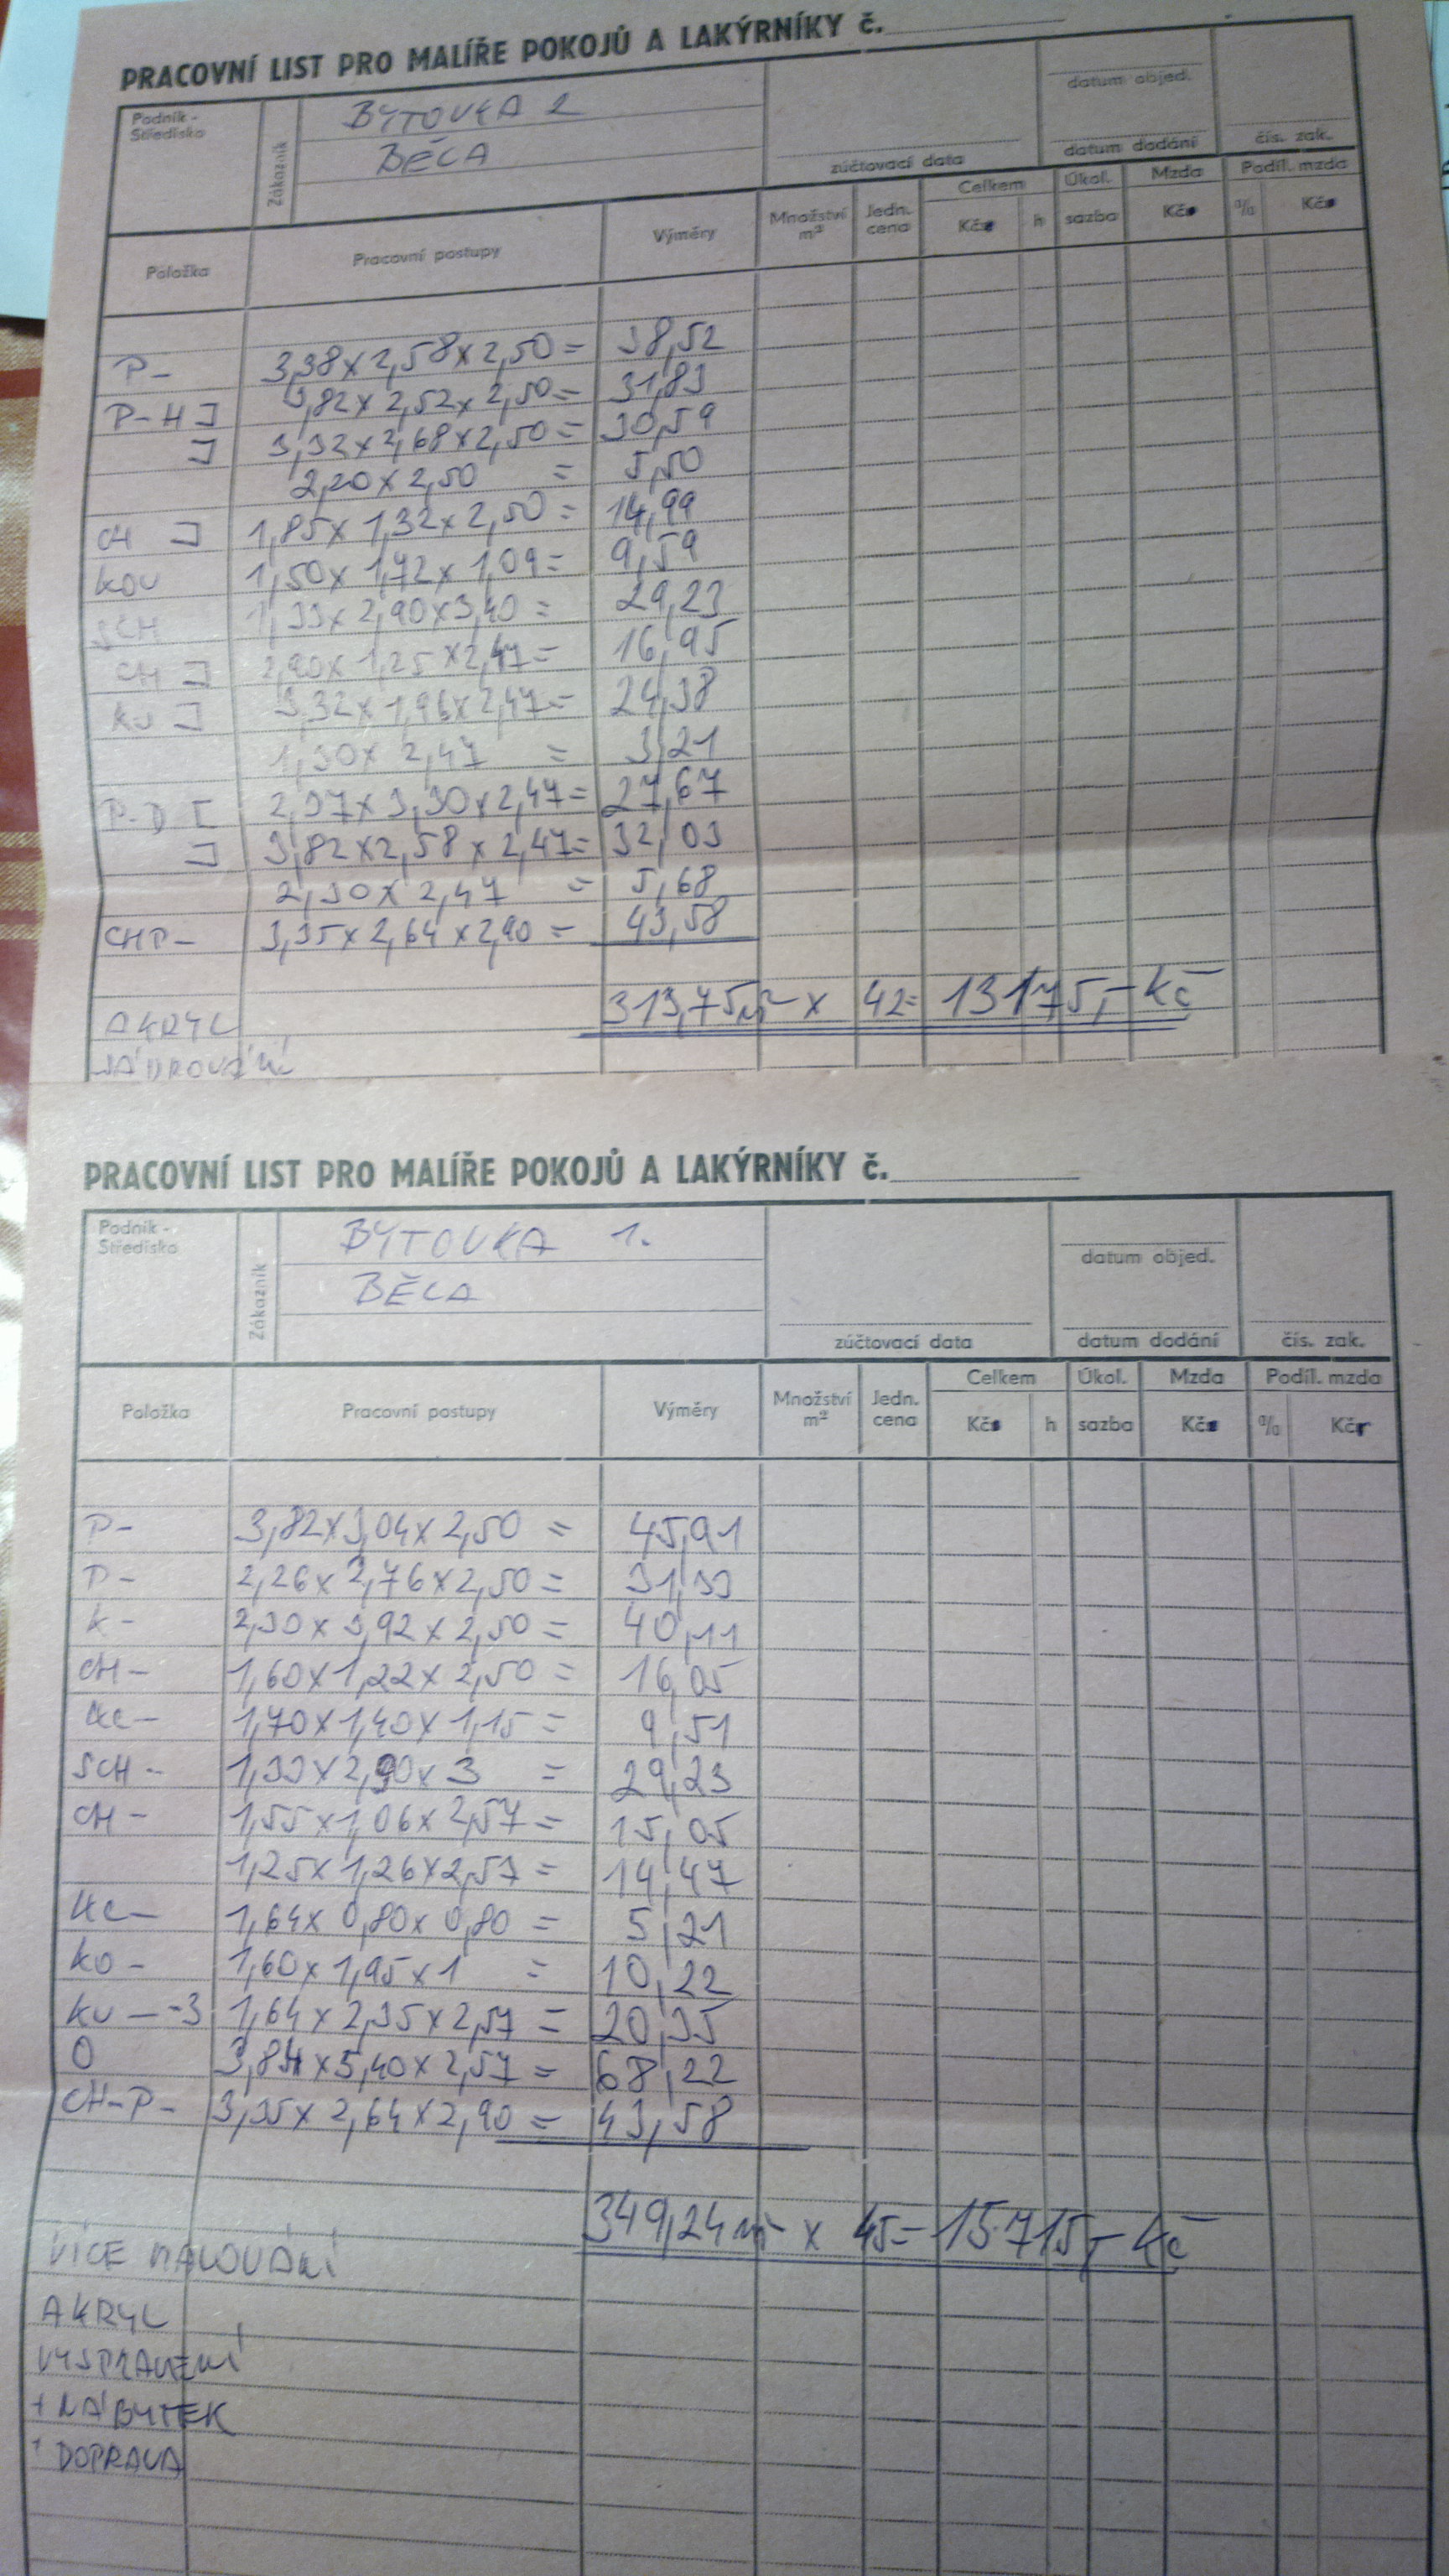 PRACOVNÍ LIST PRO MALÍŘE POKOJŮ A LAKÝRNÍKY č.
Podnik - Středisko
Zákazník
BYTOVKA 2
BĚLÁ
zúčtovací data
datum objed.
datum dodání
čís. zak.
Položka
Pracovní postupy
Výměry
Množství m²
Jedn. cena
Celkem
Kčs
h
Úkol. sazba
Mzda
Kčs
Podíl. mzda
%
Kčs
P- 3,38 x 2,58 x 2,50 = 38,52
P-H 3,82 x 2,52 x 2,50 = 31,83
3,32 x 2,68 x 2,50 = 30,59
2,20 x 2,50 = 5,50
CH 1,85 x 1,32 x 2,50 = 14,99
KOU 1,50 x 1,72 x 1,09 = 9,59
SCH 1,33 x 2,90 x 3,40 = 29,23
CH 2,90 x 1,25 x 2,47 = 16,95
KU 3,32 x 1,96 x 2,47 = 24,38
1,30 x 2,47 = 3,21
P-D 2,37 x 3,30 x 2,47 = 27,67
3,82 x 2,58 x 2,47 = 32,03
2,30 x 2,47 = 5,68
CHP- 3,35 x 2,64 x 2,90 = 43,58
313,75 m² x 42 = 13175,- Kč
AKRYL
PRACOVNÍ LIST PRO MALÍŘE POKOJŮ A LAKÝRNÍKY č.
Podnik - Středisko
Zákazník
BYTOVKA 1.
BĚLÁ
zúčtovací data
datum objed.
datum dodání
čís. zak.
Položka
Pracovní postupy
Výměry
Množství m²
Jedn. cena
Celkem
Kčs
h
Úkol. sazba
Mzda
Kčs
Podíl. mzda
%
Kčs
P- 3,82 x 3,04 x 2,50 = 45,91
P- 2,26 x 2,76 x 2,50 = 31,33
K- 2,30 x 3,92 x 2,50 = 40,11
CH- 1,60 x 1,22 x 2,50 = 16,05
1,70 x 1,40 x 1,15 = 9,51
SCH- 1,33 x 2,90 x 3 = 29,23
CH- 1,55 x 1,06 x 2,57 = 15,05
1,25 x 1,26 x 2,57 = 14,47
1,64 x 0,80 x 0,80 = 5,21
KO- 1,60 x 1,95 x 1 = 10,22
KU - -3 1,64 x 2,35 x 2,57 = 20,35
O 3,84 x 5,40 x 2,57 = 68,22
CH-P- 3,35 x 2,64 x 2,90 = 43,58
349,24 m² x 45 = 15715,- Kč
VÍCE MALOVÁNÍ
AKRYL
VYSPRAVENÍ
+ NÁBYTEK
+ DOPRAVA